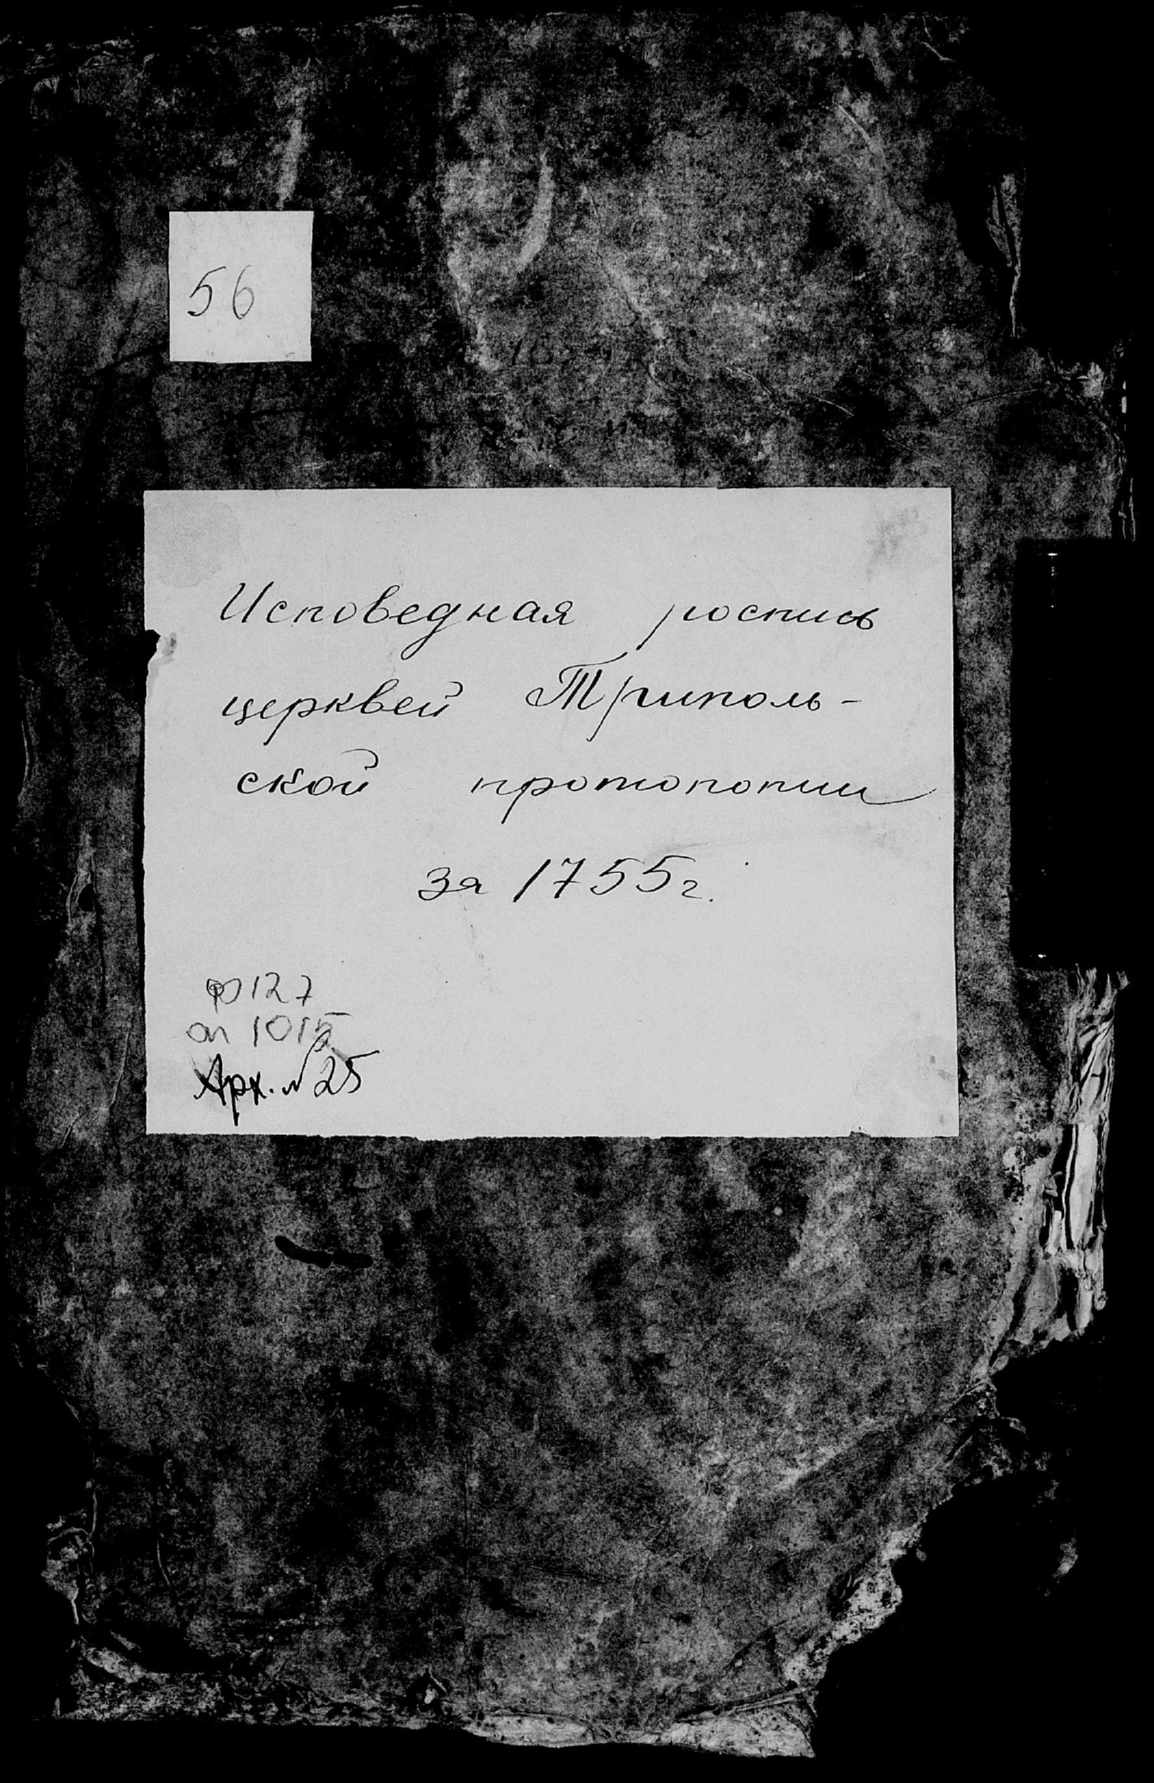 56
Исповедная роспись
церквей Триполь-
ской протопопии
за 1755 г.
ф 127
оп 1015
Арх. № 25